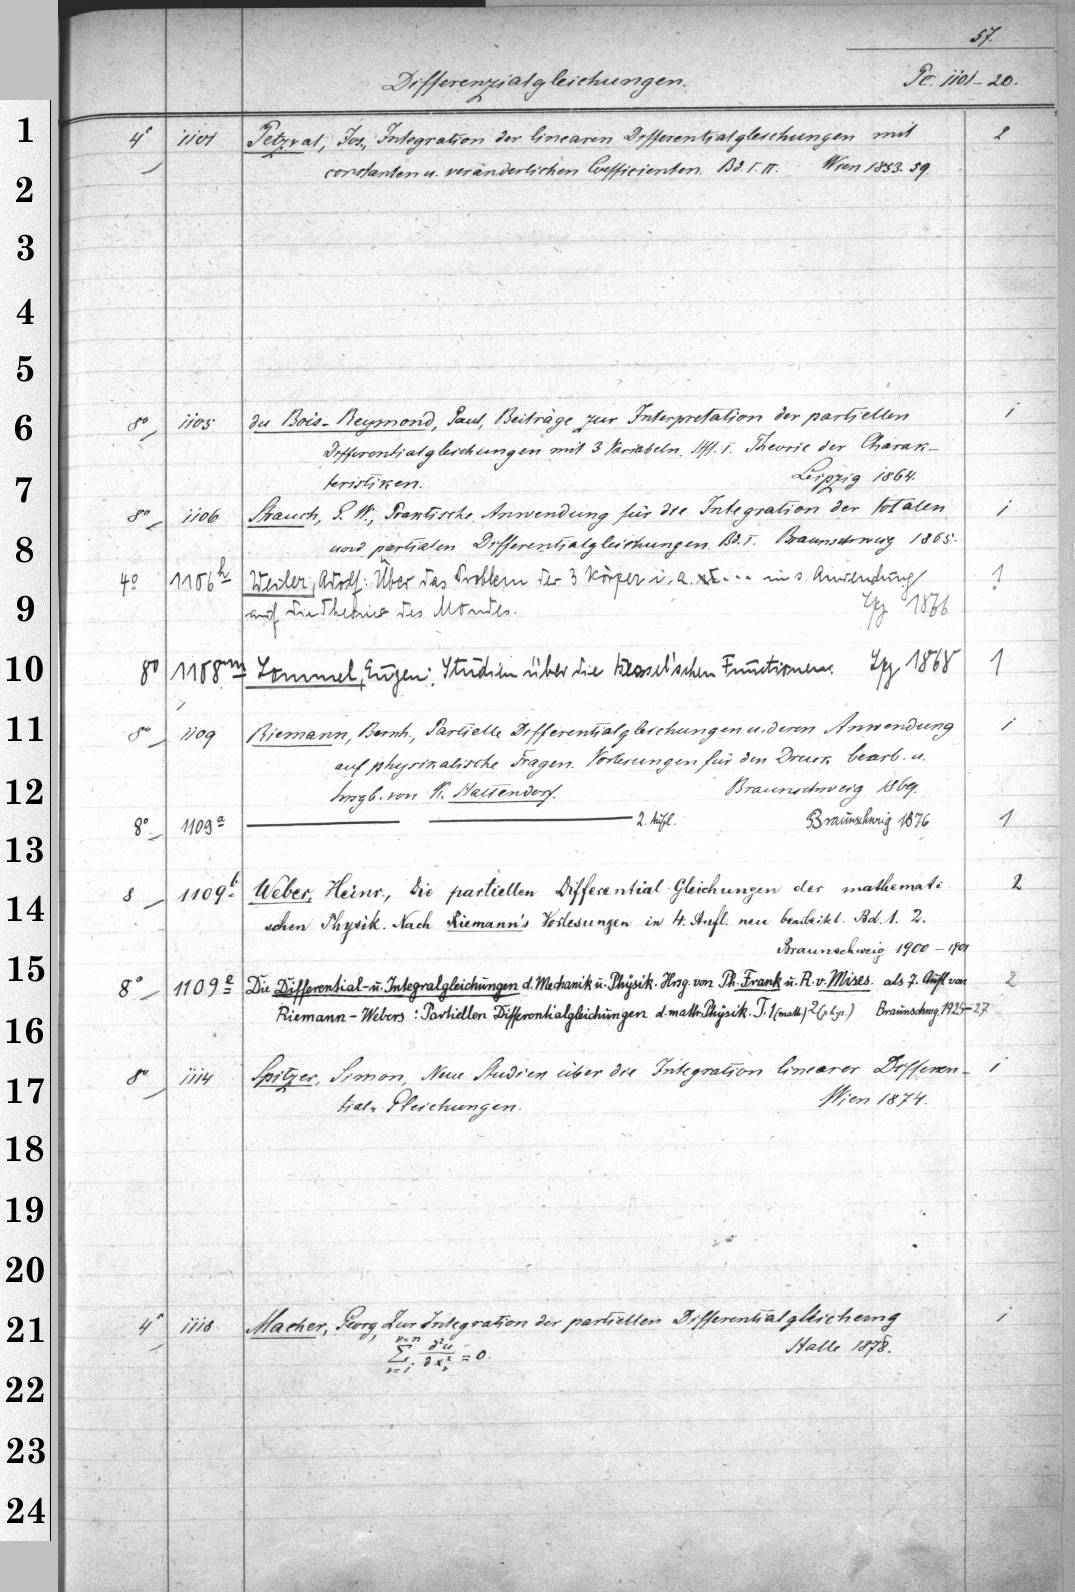 57.
Differenzialgleichungen. Pc. 1101-20.
1 4° 1101 Petzval, Jos., Integration der linearen Differentialgleichungen mit 2
2 constanten u. veränderlichen Coefficienten. Bd. I. II. Wien 1853. 59.
3
4
5
6 8° 1105 du Bois-Reymond, Paul, Beiträge zur Interpretation der partiellen 1
Differentialgleichungen mit 3 Variabeln. Hft. I. Theorie der Charak-
7 teristiken. Leipzig 1864.
8° 1106 Strauch, G. W., Praktische Anwendung für die Integration der totalen 1
8 und partialen Differentialgleichungen. Bd. I. Braunschweig 1865.
4° 1106 h Weiler, Adolf: Über das Problem der 3 Körper i. a. in s. Anwendung 1
9 auf die Theorie des Mondes. Lpz 1866
10 8° 1108 m Lommel, Eugen: Studien über die Bessel'schen Functionen. Lpz 1868 1
11 8° 1109 Riemann, Bernh., Partielle Differentialgleichungen u. deren Anwendung 1
auf physikalische Fragen. Vorlesungen für den Druck bearb. u.
12 hrsgb. von K. Hattendorf. Braunschweig 1869.
8° 1109 a 2. Aufl. Braunschweig 1876 1
13
14 8 1109 b Weber, Heinr., Die partiellen Differential-Gleichungen der mathemati-
schen Physik. Nach Riemann's Vorlesungen in 4. Aufl. neu bearbeitet. Bd. 1. 2. 2
Braunschweig 1900-1901
15 8° 1109 e Die Differential- u. Integralgleichungen d. Mechanik u. Physik. Hrsg. von Ph. Frank u. R. v. Mises. als 7. Aufl von 2
16 Riemann-Webers: Partiellen Differentialgleichungen d. math. Physik. T. 1 (math.) 2 (phys.) Braunschwg. 1925-27
17 8° 1114 Spitzer, Simon, Neue Studien über die Integration linearer Differen- 1
tial-Gleichungen. Wien 1874.
18
19
20
21 4° 1118 Macher, Georg, Zur Integration der partiellen Differentialgleichung 1
∑ ν=1 ν=n ∂²u/∂x²ν = 0. Halle 1878.
22
23
24